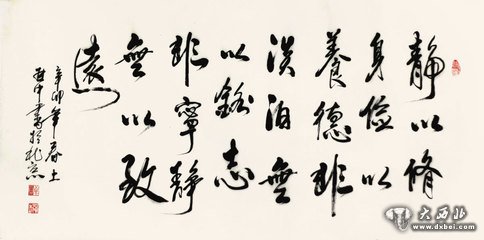 靜以脩
身儉以
養德非
淡泊無
以銘志
非寧靜
無以致
遠
辛卯年春
中書於
大西北
www.dxbei.com